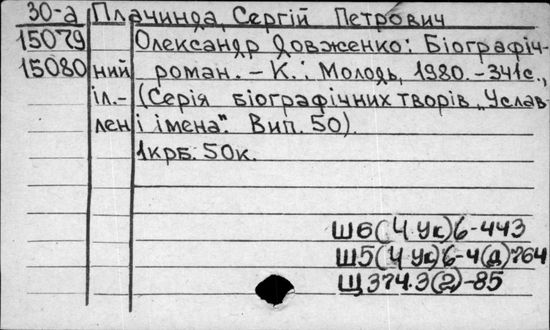 30-а Плачинда, Сергій Петрович
15079 Олександр Довженко: Біографіч-
15080 ний роман. – К.: Молодь, 1980. – 341с.,
іл. – (Серія біографічних творів „Услав-
лені імена". Вип. 50).
1крб. 50к.
Ш6(4 Ук)6-443
Ш5(4 Ук)6-4(д)764
Щ374.3(2)-85